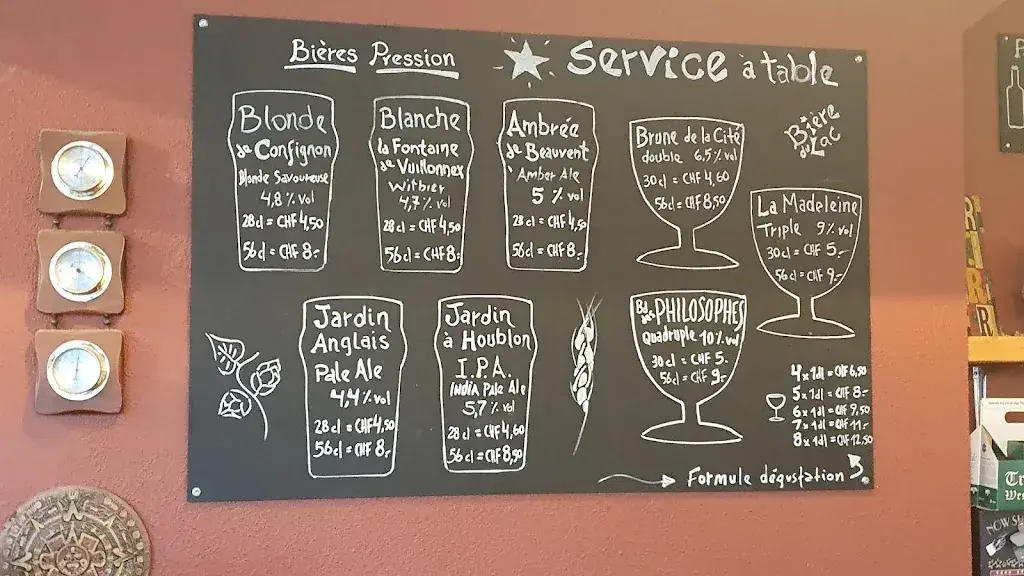 Bières Pression
Service à table
Blonde
de Confignon
Blonde Savoureuse
4,8 % vol
28 cl = CHF 4,50
56 cl = CHF 8.-
Blanche
la Fontaine
de Vuillonnex
Witbier
4,7 % vol
28 cl = CHF 4,50
56 cl = CHF 8.-
Ambrée
de Beauvent
Amber Ale
5 % vol
28 cl = CHF 4,50
56 cl = CHF 8.-
Brune de la Cité
double 6,5 % vol
30 cl = CHF 4,60
56 cl = CHF 8,50
Bière
du Lac
La Madeleine
Triple 9 % vol
30 cl = CHF 5.-
56 cl = CHF 9.-
Jardin
Anglais
Pale Ale
4,4 % vol
28 cl = CHF 4,50
56 cl = CHF 8.-
Jardin
à Houblon
I.P.A.
India Pale Ale
5,7 % vol
28 cl = CHF 4,60
56 cl = CHF 8,50
Bd des PHILOSOPHES
Quadruple 10 % vol
30 cl = CHF 5.-
56 cl = CHF 9.-
4 x 1dl = CHF 6,50
5 x 1dl = CHF 8.-
6 x 1dl = CHF 9,50
7 x 1dl = CHF 11.-
8 x 1dl = CHF 12,50
Formule dégustation